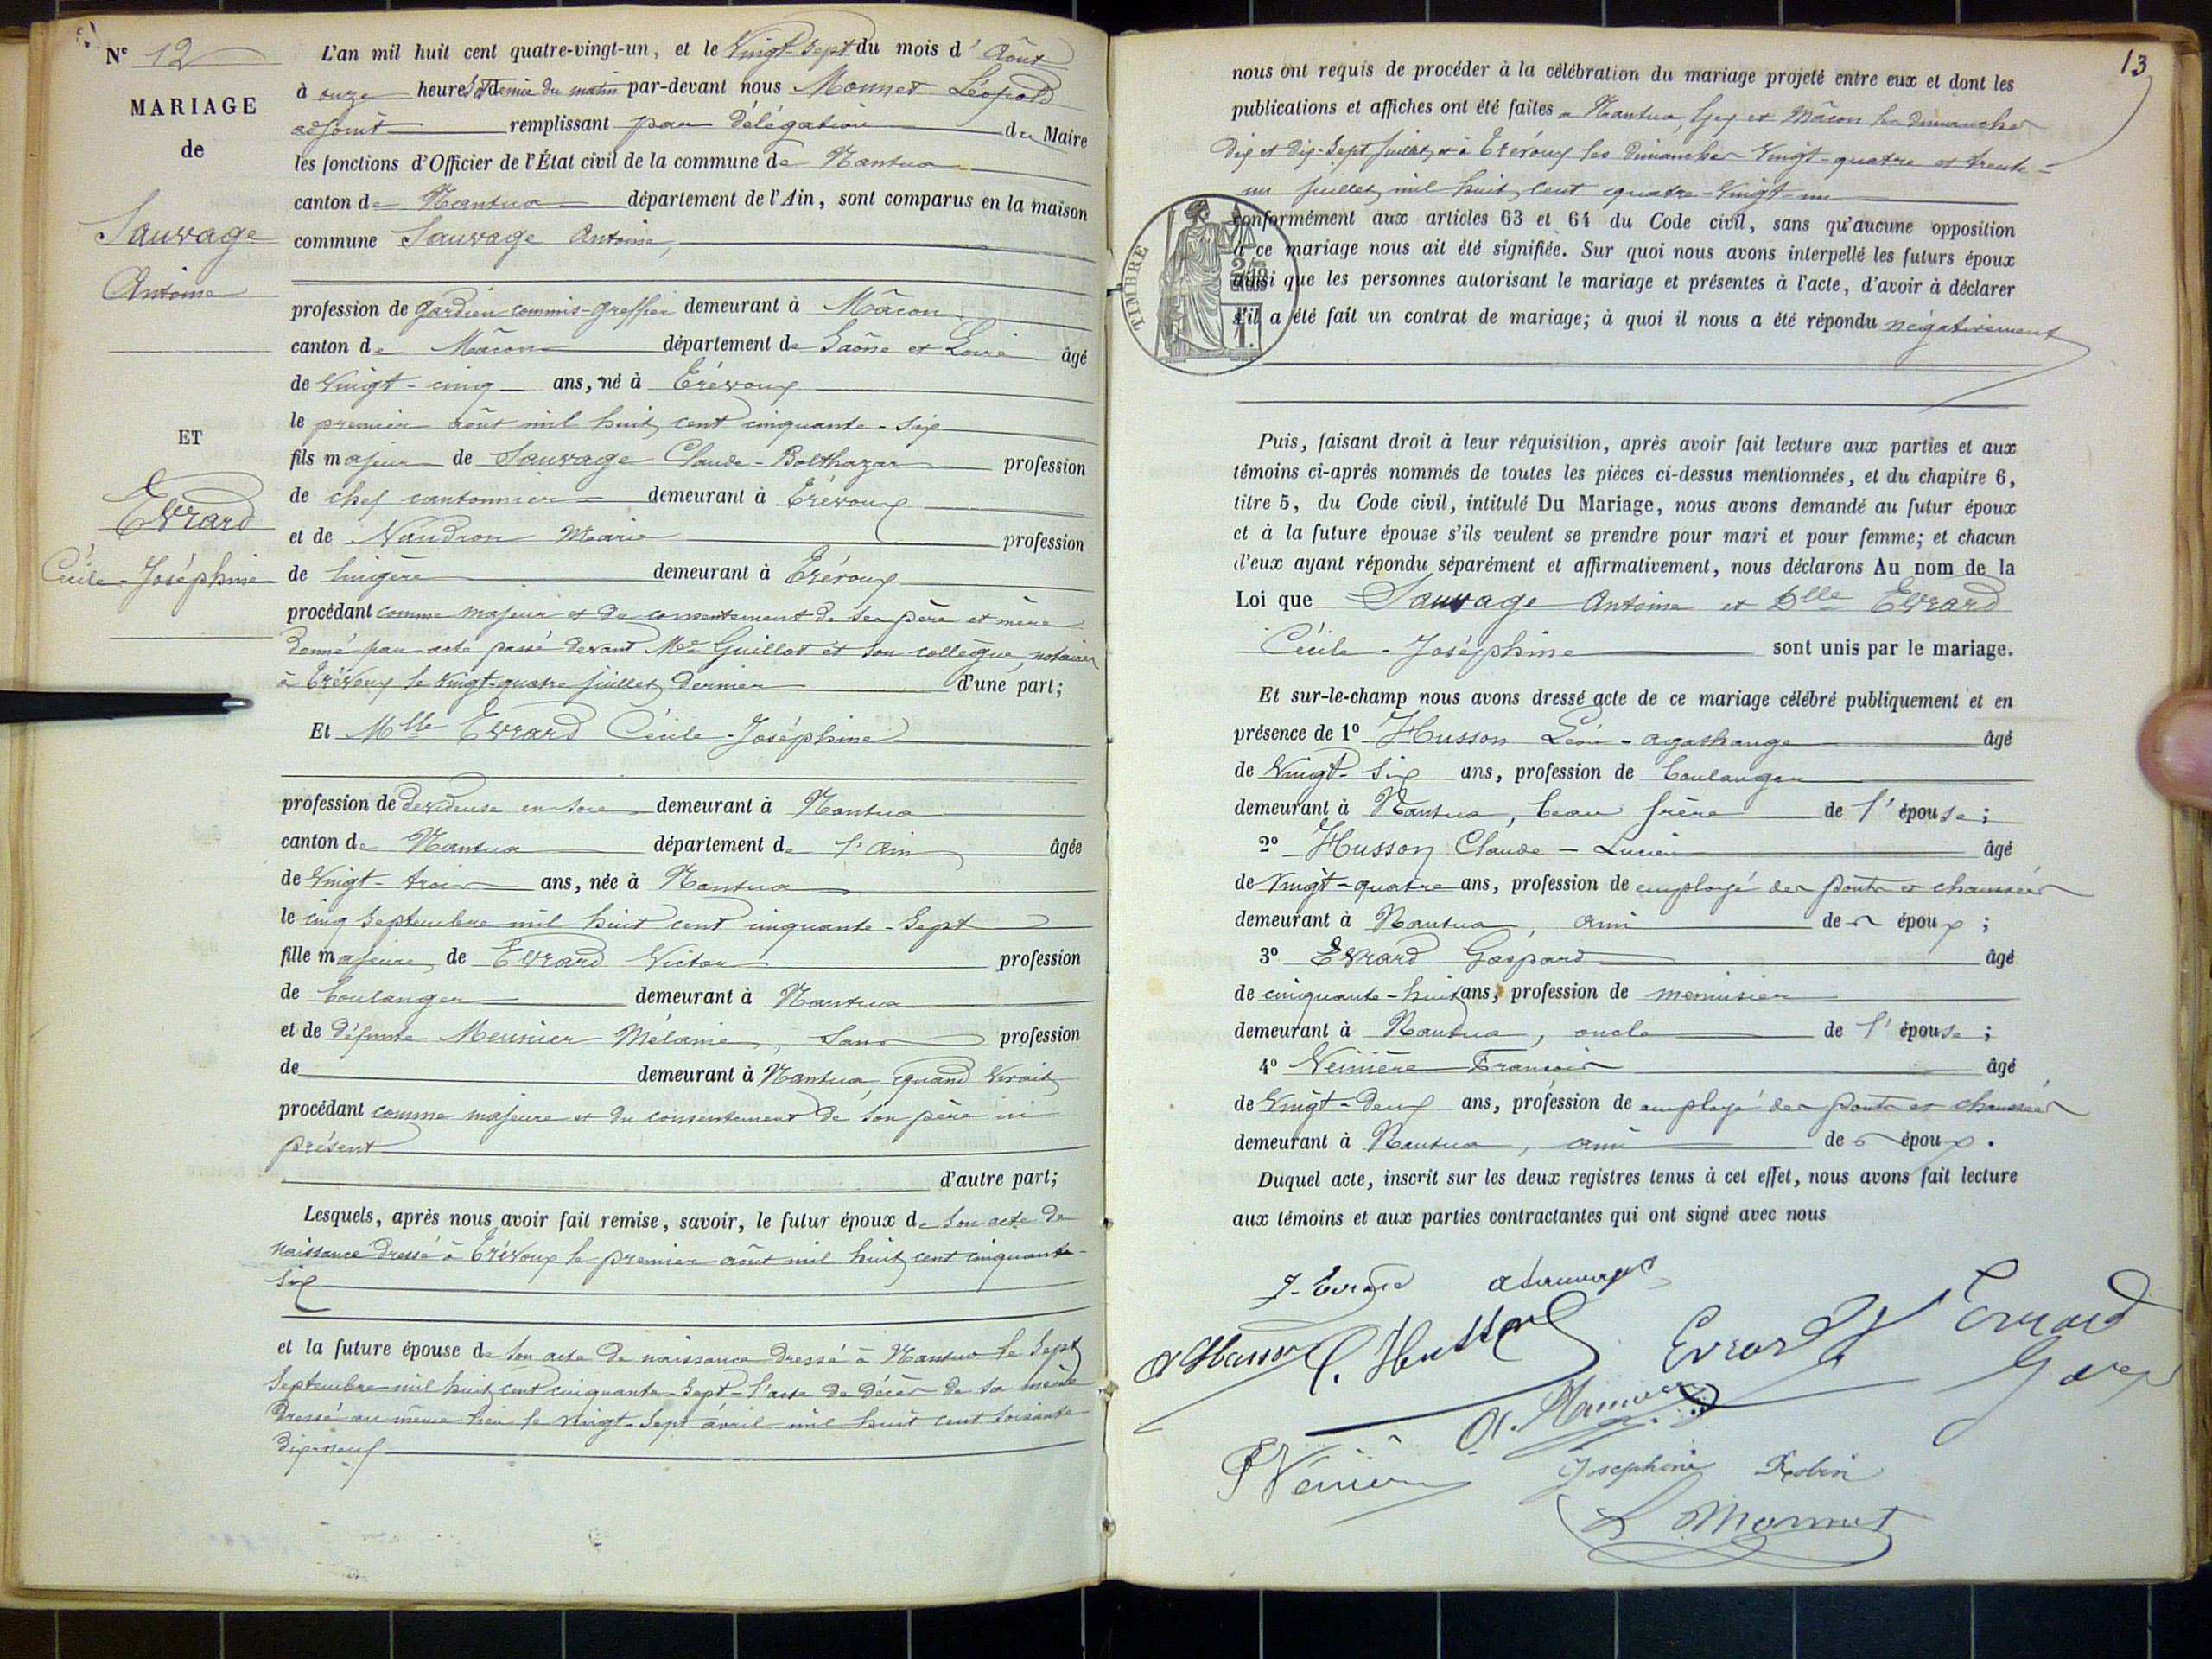 N° 12
MARIAGE
de
Sauvage
Antoine
ET
Evrard
Cécile-Joséphine
L'an mil huit cent quatre-vingt-un, et le Vingt-Sept du mois d'Août
à onze heures et demie du matin par-devant nous Monnet Léopold
adjoint remplissant par délégation du Maire
les fonctions d'Officier de l'État civil de la commune de Nantua
canton de Nantua département de l'Ain, sont comparus en la maison
commune Sauvage Antoine,
profession de gardien commis-greffier demeurant à Mâcon
canton de Mâcon département de Saône et Loire âgé
de Vingt-cinq ans, né à Trévoux
le premier août mil huit cent cinquante-six
fils majeur de Sauvage Claude-Balthazar profession
de chef cantonnier demeurant à Trévoux
et de Naudron Marie profession
de lingère demeurant à Trévoux
procédant comme majeur et du consentement de ses père et mère
donné par acte passé devant Me Guillot et son collègue, notaires
à Trévoux le vingt-quatre juillet dernier d'une part;
Et Mlle Evrard Cécile-Joséphine
profession de dévideuse en soie demeurant à Nantua
canton de Nantua département de l'Ain âgée
de Vingt-trois ans, née à Nantua
le cinq Septembre mil huit cent cinquante-Sept
fille majeure de Evrard Victor profession
de boulanger demeurant à Nantua
et de défunte Meunier Mélanie, sans profession
de demeurant à Nantua, quand vivait,
procédant comme majeure et du consentement de son père ici
présent
d'autre part;
Lesquels, après nous avoir fait remise, savoir, le futur époux de Son acte de
naissance dressé à Trévoux le premier août mil huit cent cinquante-
six
et la future épouse de Son acte de naissance dressé à Nantua le Sept
Septembre mil huit cent cinquante-Sept - l'acte de décès de sa mère
dressé au même lieu le vingt-Sept avril mil huit cent soixante
dix-neuf
13
nous ont requis de procéder à la célébration du mariage projeté entre eux et dont les
publications et affiches ont été faites à Nantua, Gex et Mâcon les dimanches
dix et dix-Sept juillet, et à Trévoux les dimanches Vingt-quatre et trente-
un juillet mil huit cent quatre-vingt-un
conformément aux articles 63 et 64 du Code civil, sans qu'aucune opposition
à ce mariage nous ait été signifiée. Sur quoi nous avons interpellé les futurs époux
ainsi que les personnes autorisant le mariage et présentes à l'acte, d'avoir à déclarer
s'il a été fait un contrat de mariage; à quoi il nous a été répondu négativement
TIMBRE
Puis, faisant droit à leur réquisition, après avoir fait lecture aux parties et aux
témoins ci-après nommés de toutes les pièces ci-dessus mentionnées, et du chapitre 6,
titre 5, du Code civil, intitulé Du Mariage, nous avons demandé au futur époux
et à la future épouse s'ils veulent se prendre pour mari et pour femme; et chacun
d'eux ayant répondu séparément et affirmativement, nous déclarons Au nom de la
Loi que Sauvage Antoine et Dlle Evrard
Cécile-Joséphine sont unis par le mariage.
Et sur-le-champ nous avons dressé acte de ce mariage célébré publiquement et en
présence de 1° Husson Léon-agathange âgé
de Vingt-Six ans, profession de boulanger
demeurant à Nantua, beau frère de l'épouse;
2° Husson Claude-Lucien âgé
de Vingt-quatre ans, profession de employé des ponts et chaussées
demeurant à Nantua, ami de l'époux;
3° Evrard Gaspard âgé
de cinquante-huit ans, profession de menuisier
demeurant à Nantua, oncle de l'épouse;
4° Veinière François âgé
de Vingt-deux ans, profession de employé des ponts et chaussées
demeurant à Nantua, ami de l'époux.
Duquel acte, inscrit sur les deux registres tenus à cet effet, nous avons fait lecture
aux témoins et aux parties contractantes qui ont signé avec nous
J. Evrard A Sauvage
Husson C. Husson Evrard V Evrard
Josephine Robin
L Monnet